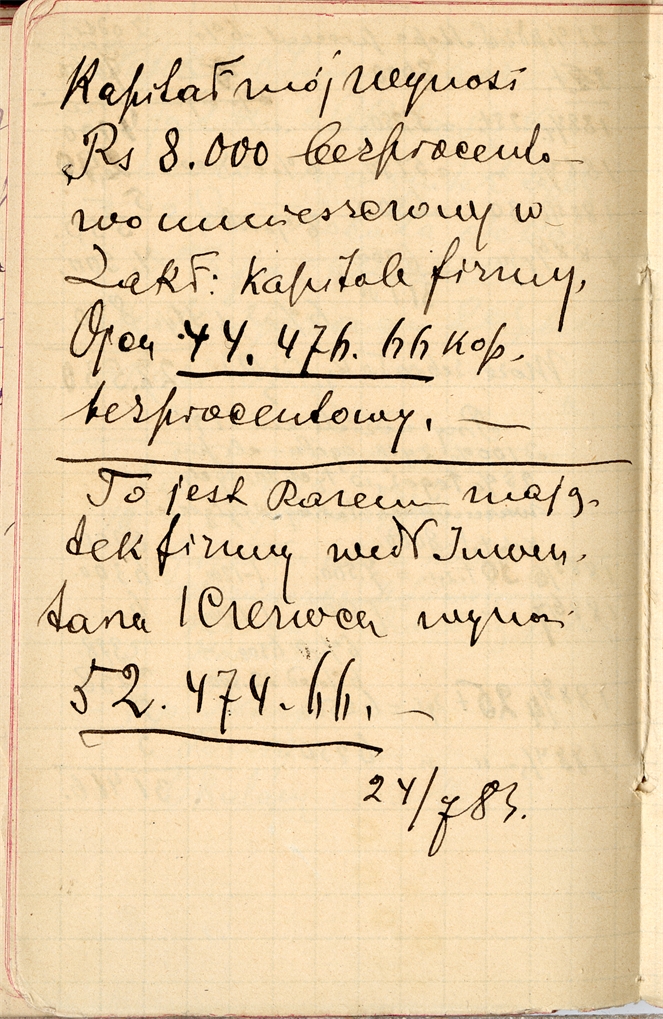 Kapitał mój wynosi
Rs 8.000 bezprocento-
wo umieszczony w
Zakł: kapitale firmy,
Ojca 44.476.66 kop.
bezprocentowy. —
To jest Razem mają-
tek firmy wedł Inwen-
tarza 1 Czerwca wynosi
52.474.66. —
24/7 83.